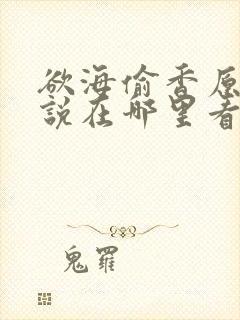 欲海偷香原
說在哪里看
鬼羅